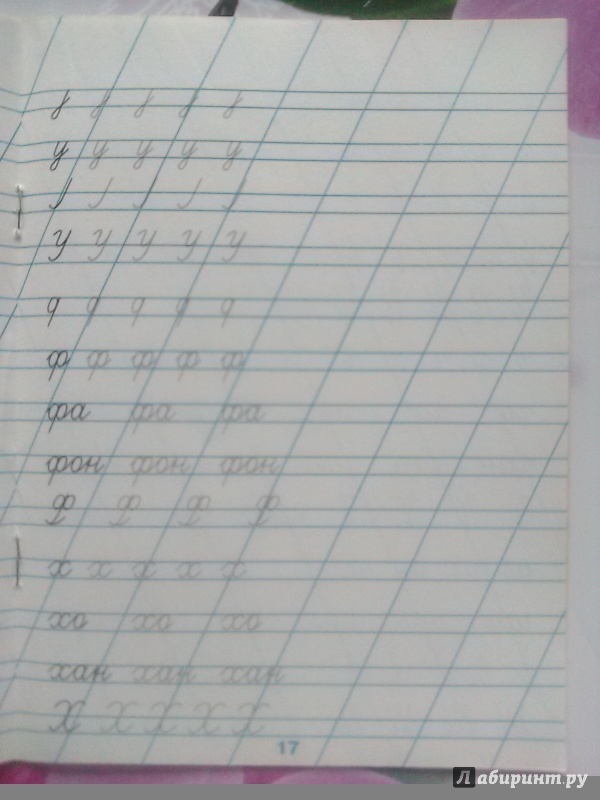 у у у у у
У У У У У
ф ф ф ф ф
фа фа фа
фон фон фон
Ф Ф Ф Ф
х х х х х
хо хо хо
хан хан хан
Х Х Х Х Х
17
Лабиринт.ру